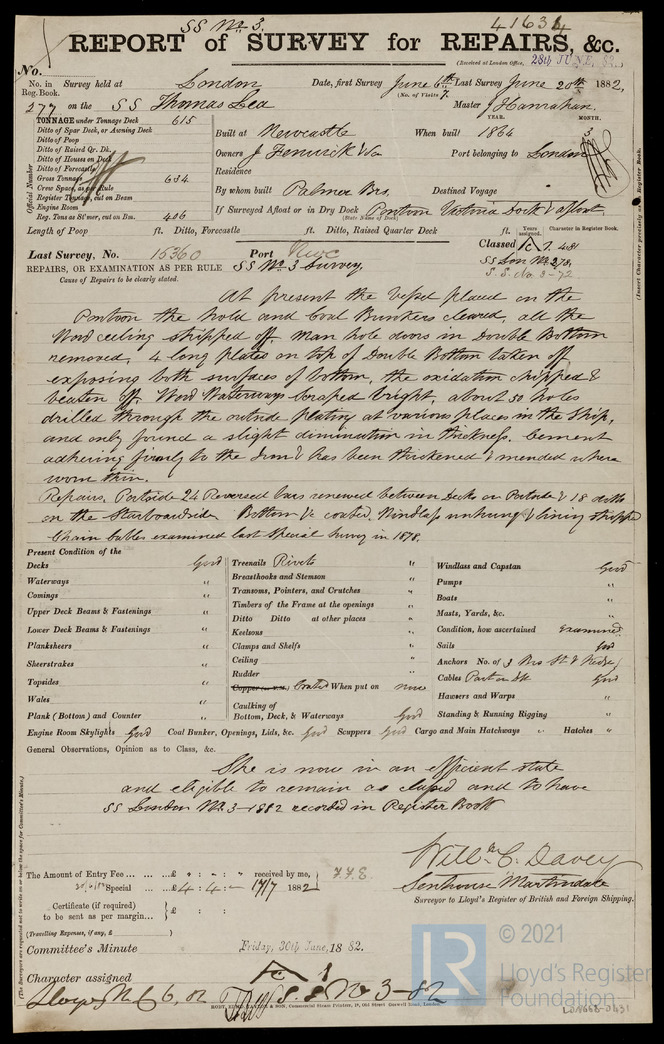 SS No. 3.
41634
REPORT of SURVEY for REPAIRS, &c.
(Received at London Office, 28th JUNE, 82.)
No.
No. in Reg. Book. Survey held at London Date, first Survey June 6th Last Survey June 20th 1882,
(No. of Visits 7.
277 on the SS Thomas Lea Master J Hanrahan.
YEAR. MONTH.
TONNAGE under Tonnage Deck 615
Ditto of Spar Deck, or Awning Deck
Ditto of Poop
Ditto of Raised Qr. Dk.
Ditto of Houses on Deck
Ditto of Forecastle
Gross Tonnage 634
Crew Space, as per Rule
Register Tonnage, cut on Beam
Engine Room
Reg. Tons as St'mer, cut on Bm. 406
Official Number
Built at Newcastle When built 1864 3
Owners J Fenwick Port belonging to London
Residence
By whom built Palmer Bros. Destined Voyage
If Surveyed Afloat or in Dry Dock Pontoon Victoria Dock & afloat
(State Name of Dock)
Length of Poop ft. Ditto, Forecastle ft. Ditto, Raised Quarter Deck ft. Years assigned. Character in Register Book.
(Insert Character precisely as in Register Book.
Last Survey, No. 15360 Port Newc Classed A 1
REPAIRS, OR EXAMINATION AS PER RULE SS No 3 Survey, SS Lon No 2
Cause of Repairs to be clearly stated. S.S. No. 3-72
At present the vessel placed on the
Pontoon the hold and Coal Bunkers cleared, all the
Wood ceiling stripped off. Man hole doors in Double Bottom
removed, 4 long plates on top of Double Bottom taken off
exposing both surfaces of bottom, the oxidation chipped &
beaten off. Wood Waterways scraped bright, about 50 holes
drilled through the outside plating at various places in the Ship,
and only found a slight diminution in thickness. Cement
adhering firmly to the Iron & has been thickened & mended where
worn thin.
Repairs. Portside 24 Reversed bars renewed between Decks on Portside & 18 ditto
on the Starboardside Bottom &c coated. Windlass unhung & lining stripped
Chain cables examined last Special Survey in 1878.
Present Condition of the
Decks Good
Waterways "
Comings "
Upper Deck Beams & Fastenings "
Lower Deck Beams & Fastenings "
Planksheers "
Sheerstrakes "
Topsides "
Wales "
Plank (Bottom) and Counter "
Treenails Rivets "
Breasthooks and Stemson "
Transoms, Pointers, and Crutches "
Timbers of the Frame at the openings "
Ditto Ditto at other places "
Keelsons "
Clamps and Shelfs "
Ceiling "
Rudder "
Copper (or Y.M.) Coated When put on now
Caulking of
Bottom, Deck, & Waterways Good
Windlass and Capstan Good
Pumps "
Boats "
Masts, Yards, &c. "
Condition, how ascertained Examined
Sails Good
Anchors No. of 3 Brs St & Kedge
Cables Part on Dk Good
Hawsers and Warps "
Standing & Running Rigging "
Engine Room Skylights Good Coal Bunker, Openings, Lids, &c. Good Scuppers Good Cargo and Main Hatchways " Hatches "
General Observations, Opinion as to Class, &c.
She is now in an efficient state
and eligible to remain as classed and to have
SS London No. 3-1882 recorded in Register Book
Willm C. Davey
Senhouse Martindale
Surveyor to Lloyd's Register of British and Foreign Shipping.
The Amount of Entry Fee ... ... £ : : received by me,
Special ... £ 4 : 4 : - 17/7 1882
Certificate (if required)
to be sent as per margin... £ :
(Travelling Expenses, if any, £ )
Committee's Minute Friday, 30th June, 1882.
Character assigned A 1
Lloyds M C 6, 82 S.S No 3-82
(The Surveyors are requested not to write on or below the space for Committee's Minute.)
© 2021
LR
Lloyd's Register
Foundation
LON668-0431